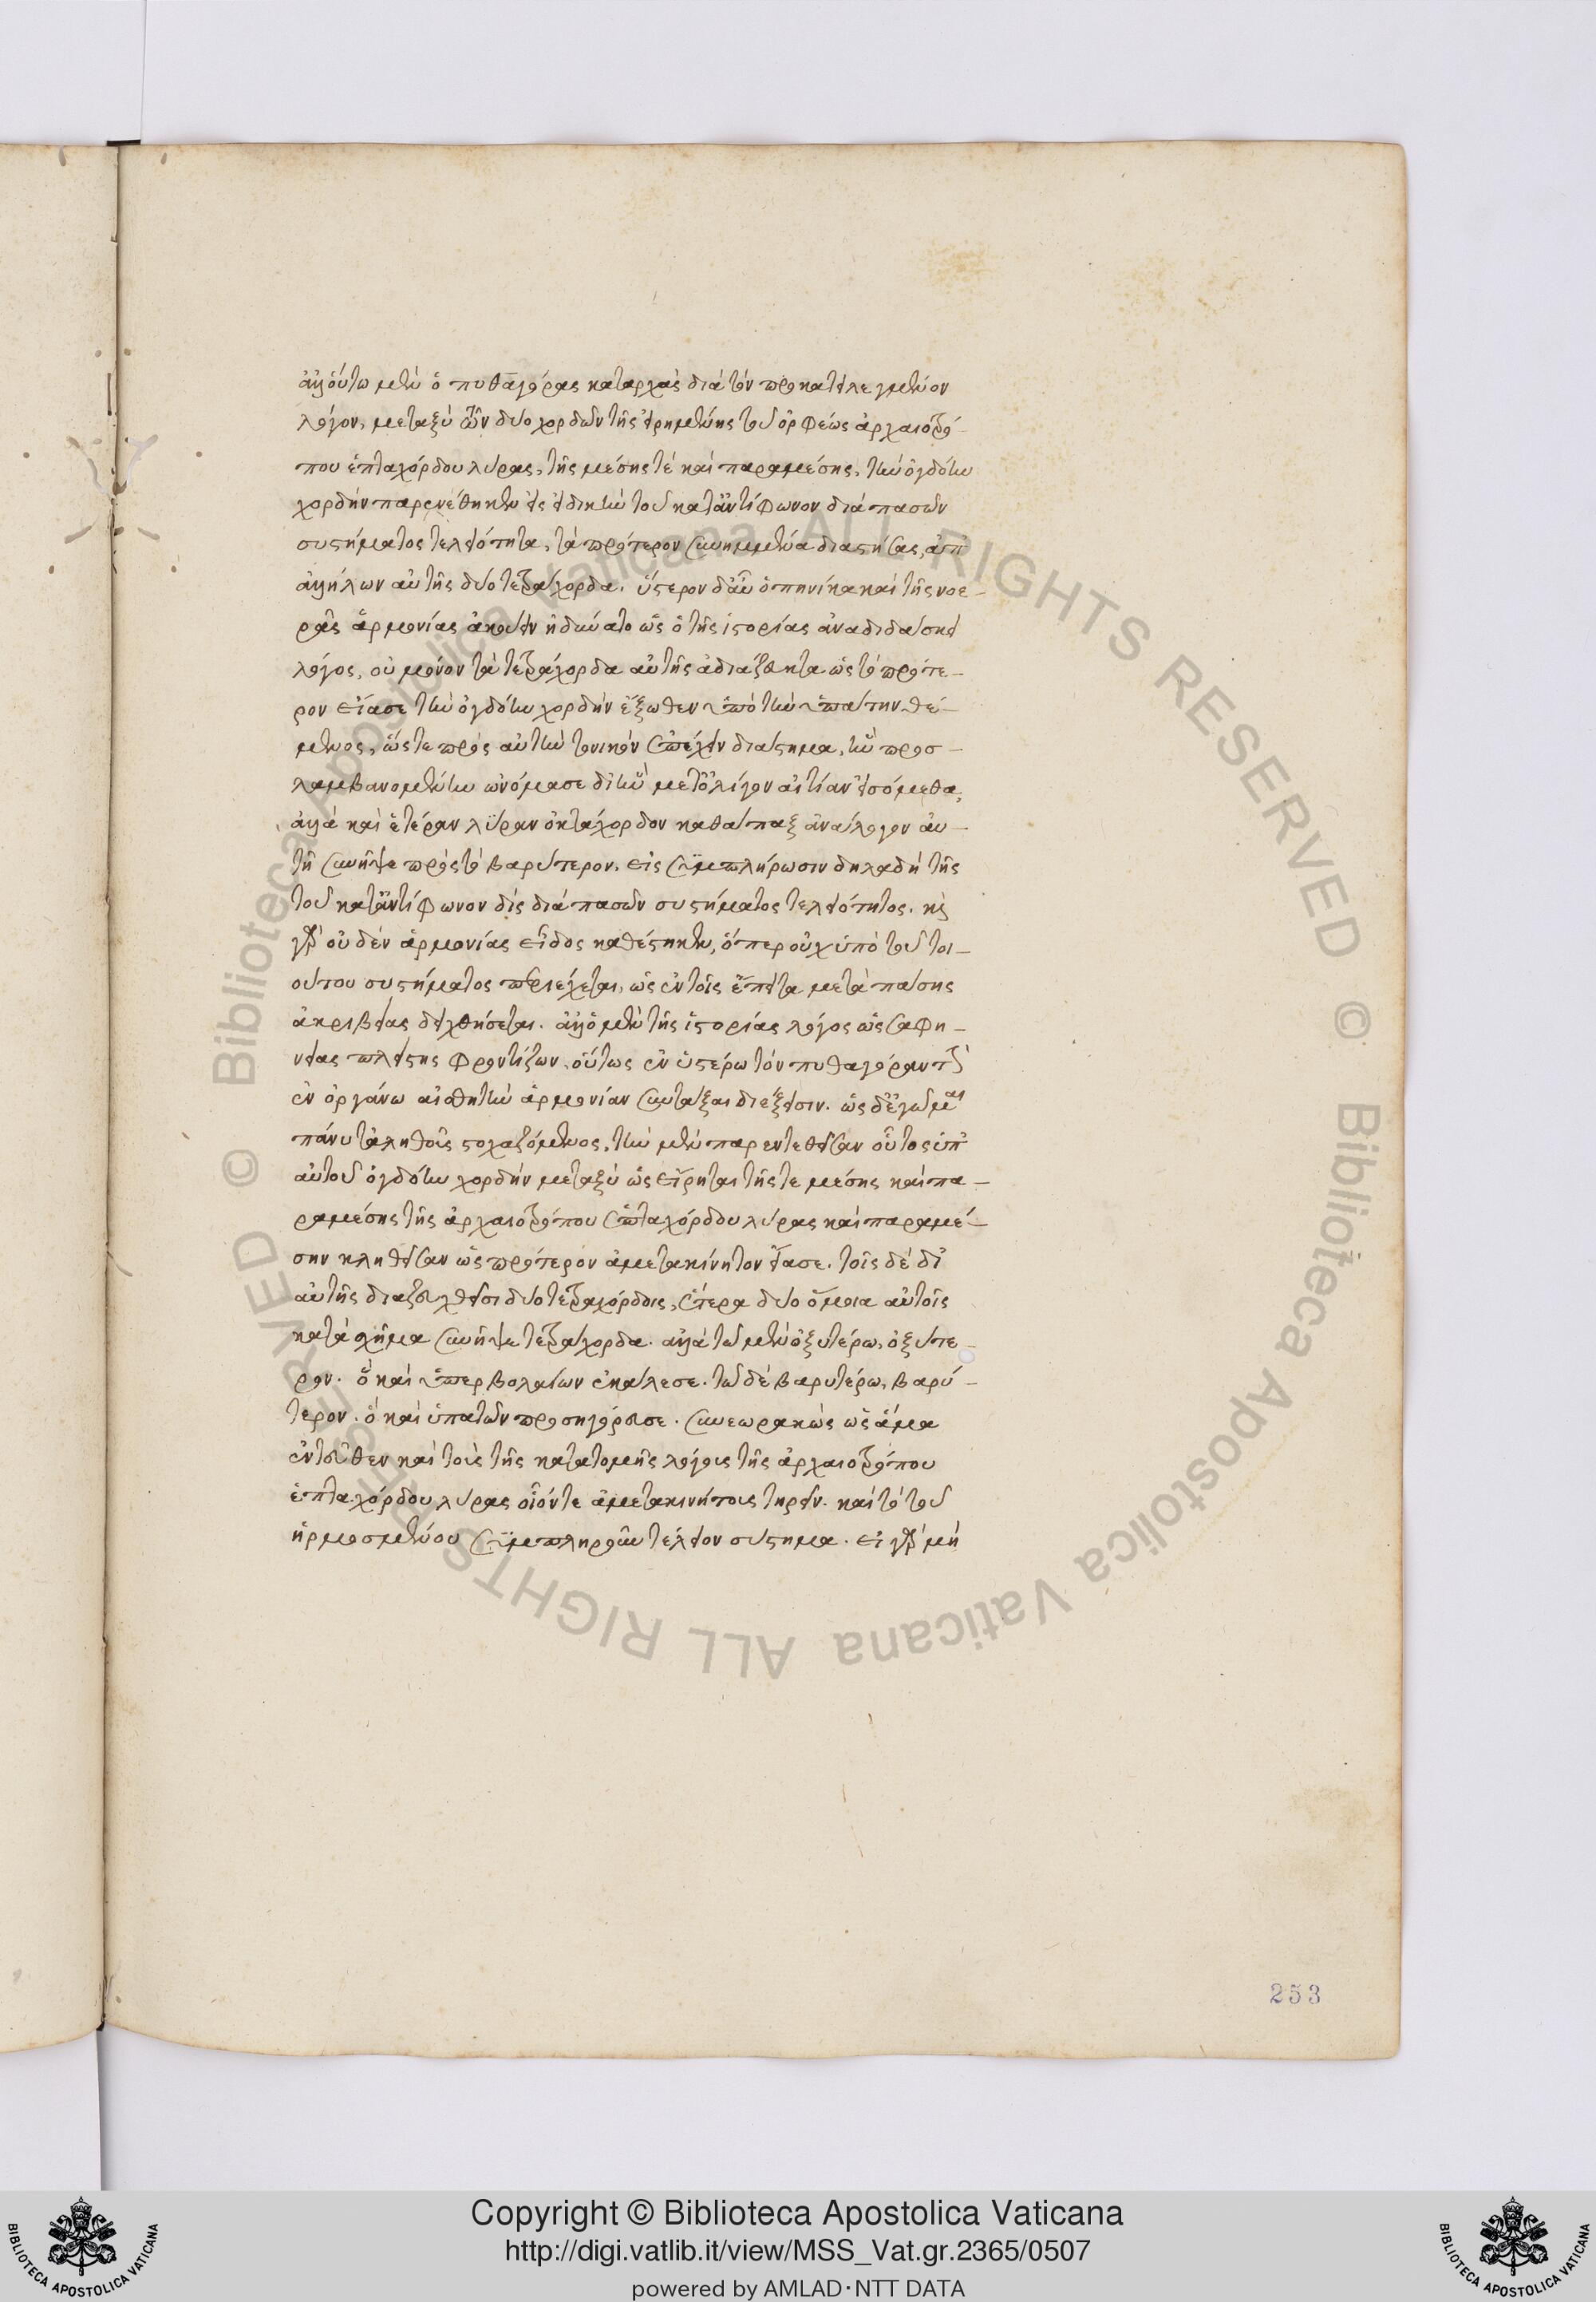 ἀλλ' οὕτω μὲν ὁ πυθαγόρας καταρχὰς διὰ τὸν προκατειλεγμένον
λόγον, μεταξὺ τῶν δύο χορδῶν τῆς εἰρημένης τοῦ ὀρφέως ἀρχαιοτρό-
που ἑπταχόρδου λύρας, τῆς μέσης τὲ καὶ παραμέσης, τὴν ὀγδόην
χορδὴν παρενέθηκεν εἰς εἰδικὴν τοῦ κατ' ἀντίφωνον διὰ πασῶν
συστήματος τελειότητα, τὰ πρότερον συνημμένα διαστήσας, ἀπ'
ἀλλήλων αὐτῆς δύο τετράχορδα. ὕστερον δ' αὖ ὁπηνίκα καὶ τῆς νοε-
ρᾶς ἁρμονίας ἀκούειν ἠδύνατο ὡς ὁ τῆς ἱστορίας ἀναδιδάσκει
λόγος, οὐ μόνον τὰ τετράχορδα αὐτῆς ἀδιάζευκτα ὡς τὸ πρότε-
ρον εἴασε τὴν ὀγδόην χορδὴν ἔξωθεν ὑπὸ τὴν ὑπάτην θέ-
μενος, ὥστε πρὸς αὐτὴν τονικὸν ἐπέχειν διάστημα, ἣν προσ-
λαμβανομένην ὠνόμασε δι' ἣν μετ' ὀλίγον αἰτίαν εἰσόμεθα,
ἀλλὰ καὶ ἑτέραν λύραν ὀκτάχορδον καθάπαξ ἀνάλογον αὐ-
τῇ συνῆψε πρὸς τὸ βαρύτερον. εἰς συμπλήρωσιν δηλαδὴ τῆς
τοῦ κατ' ἀντίφωνον δὶς διὰ πασῶν συστήματος τελειότητος. καὶ
γὰρ οὐδὲν ἁρμονίας εἶδος καθέστηκεν, ὅπερ οὐχ ὑπὸ τοῦ τοι-
ούτου συστήματος περιέχεται, ὡς ἐν τοῖς ἔπειτα μετὰ πάσης
ἀκριβείας δειχθήσεται. ἀλλ' ὁ μὲν τῆς ἱστορίας λόγος ὡς σαφη-
νείας πλείστης φροντίζων, οὕτως ἐν ὑστέρω τὸν πυθαγόραν τὴν
ἐν ὀργάνω αἰσθητὴν ἁρμονίαν συντάξαι διέξεισιν. ὡς δ' ἐγῶμαι
πάνυ τἀληθοῦς στοχαζόμενος, τὴν μὲν παρεντεθεῖσαν οὗτος ὑπ'
αὐτοῦ ὀγδόην χορδὴν μεταξὺ ὡς εἴρηται τῆς τε μέσης καὶ πα-
ραμέσης τῆς ἀρχαιοτρόπου ἑπταχόρδου λύρας καὶ παραμέ-
σην κληθεῖσαν ὡς πρότερον ἀμετακίνητον εἴασε. τοῖς δὲ δι'
αὐτῆς διαζευχθεῖσι δυσὶ τετραχόρδοις, ἕτερα δύο ὅμοια αὐτοῖς
κατὰ σχῆμα συνῆψε τετράχορδα. ἀλλὰ τῶ μὲν ὀξυτέρω, ὀξύτε-
ρον. ὃ καὶ ὑπερβολαίων ἐκάλεσε. τῶ δὲ βαρυτέρω, βαρύ-
τερον. ὃ καὶ ὑπατῶν προσηγόρευσε. συνεωρακὼς ὡς ἅμα
ἐντεῦθεν καὶ τοὺς τῆς κατατομῆς λόγους τῆς ἀρχαιοτρόπου
ἑπταχόρδου λύρας οἷόν τε ἀμετακινήτους τηρεῖν. καὶ τὸ τοῦ
ἡρμοσμένου συμπληροῦν τέλειον σύστημα. εἰ γὰρ μὴ
253
Copyright © Biblioteca Apostolica Vaticana
http://digi.vatlib.it/view/MSS_Vat.gr.2365/0507
powered by AMLAD·NTT DATA